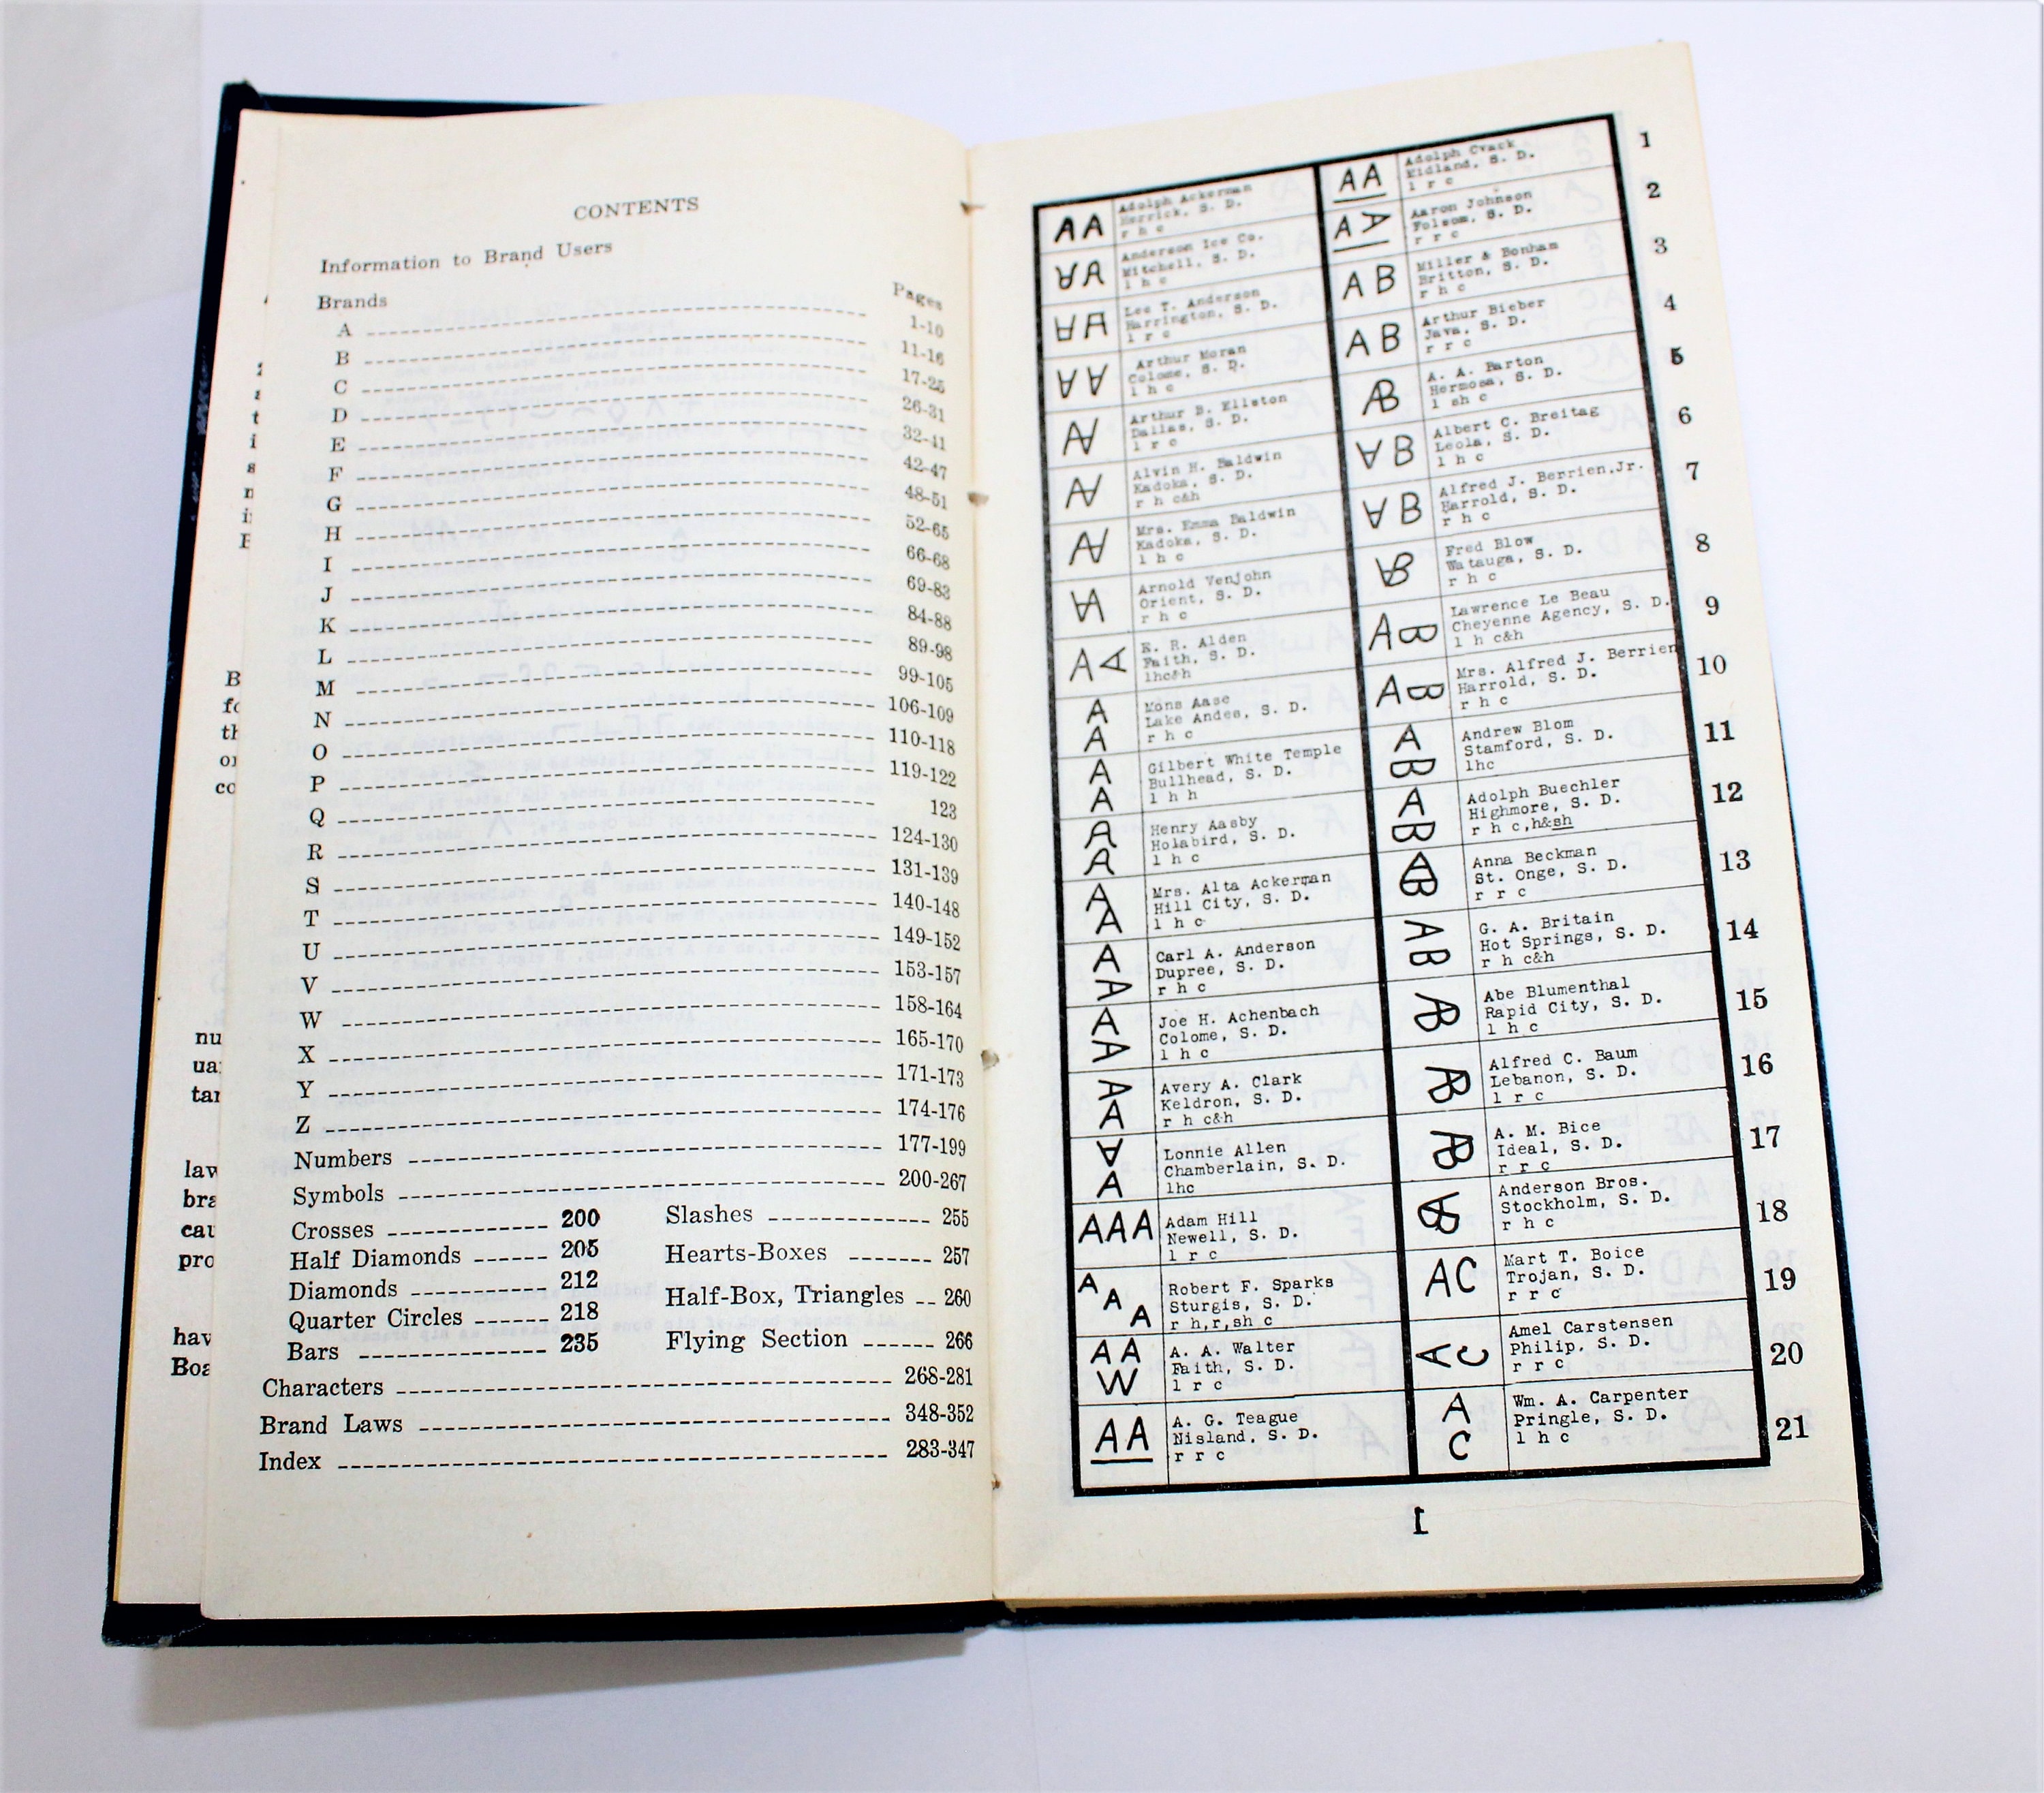 CONTENTS
Information to Brand Users
Brands
Pages
A 1-10
B 11-16
C 17-25
D 26-31
E 32-41
F 42-47
G 48-51
H 52-65
I 66-68
J 69-83
K 84-88
L 89-98
M 99-105
N 106-109
O 110-118
P 119-122
Q 123
R 124-130
S 131-139
T 140-148
U 149-152
V 153-157
W 158-164
X 165-170
Y 171-173
Z 174-176
Numbers 177-199
Symbols 200-267
Crosses 200
Half Diamonds 205
Diamonds 212
Quarter Circles 218
Bars 235
Slashes 255
Hearts-Boxes 257
Half-Box, Triangles 260
Flying Section 266
Characters 268-281
Brand Laws 348-352
Index 283-347
AA
Adolph Ackerman
Herrick, S. D.
r h c
AA
Anderson Ice Co.
Mitchell, S. D.
l h c
AA
Lee T. Anderson
Harrington, S. D.
l r c
AA
Arthur Moran
Colome, S. D.
l h c
Arthur B. Elliston
Dallas, S. D.
l r c
Alvin H. Baldwin
Kadoka, S. D.
r h c&h
Mrs. Emma Baldwin
Kadoka, S. D.
l h c
Arnold Venjohn
Orient, S. D.
r h c
AA
E. R. Alden
Faith, S. D.
lhc&h
A
A
Mons Aase
Lake Andes, S. D.
r h c
A
A
Gilbert White Temple
Bullhead, S. D.
l h h
A
A
Henry Aasby
Holabird, S. D.
l h c
A
A
Mrs. Alta Ackerman
Hill City, S. D.
l h c
A
A
Carl A. Anderson
Dupree, S. D.
r h c
A
A
Joe H. Achenbach
Colome, S. D.
l h c
A
A
Avery A. Clark
Keldron, S. D.
r h c&h
A
A
Lonnie Allen
Chamberlain, S. D.
lhc
AAA
Adam Hill
Newell, S. D.
l r c
A
A
A
Robert F. Sparks
Sturgis, S. D.
r h,r,sh c
AA
W
A. A. Walter
Faith, S. D.
l r c
AA
A. G. Teague
Nisland, S. D.
r r c
AA
Adolph Cvack
Midland, S. D.
l r c
1
AA
Aaron Johnson
Folsom, S. D.
r r c
2
AB
Miller & Bonham
Britton, S. D.
r h c
3
AB
Arthur Bieber
Java, S. D.
r r c
4
AB
A. A. Barton
Hermosa, S. D.
l sh c
5
AB
Albert C. Breitag
Leola, S. D.
l h c
6
AB
Alfred J. Berrien,Jr.
Harrold, S. D.
r h c
7
AB
Fred Blow
Watauga, S. D.
r h c
8
AB
Lawrence Le Beau
Cheyenne Agency, S. D.
l h c&h
9
AB
Mrs. Alfred J. Berrien
Harrold, S. D.
r h c
10
A
B
Andrew Blom
Stamford, S. D.
lhc
11
A
B
Adolph Buechler
Highmore, S. D.
r h c,h&sh
12
Anna Beckman
St. Onge, S. D.
r r c
13
A
B
G. A. Britain
Hot Springs, S. D.
r h c&h
14
Abe Blumenthal
Rapid City, S. D.
l h c
15
Alfred C. Baum
Lebanon, S. D.
l r c
16
A. M. Bice
Ideal, S. D.
r r c
17
Anderson Bros.
Stockholm, S. D.
r h c
18
AC
Mart T. Boice
Trojan, S. D.
r r c
19
AC
Amel Carstensen
Philip, S. D.
r r c
20
A
C
Wm. A. Carpenter
Pringle, S. D.
l h c
21
1